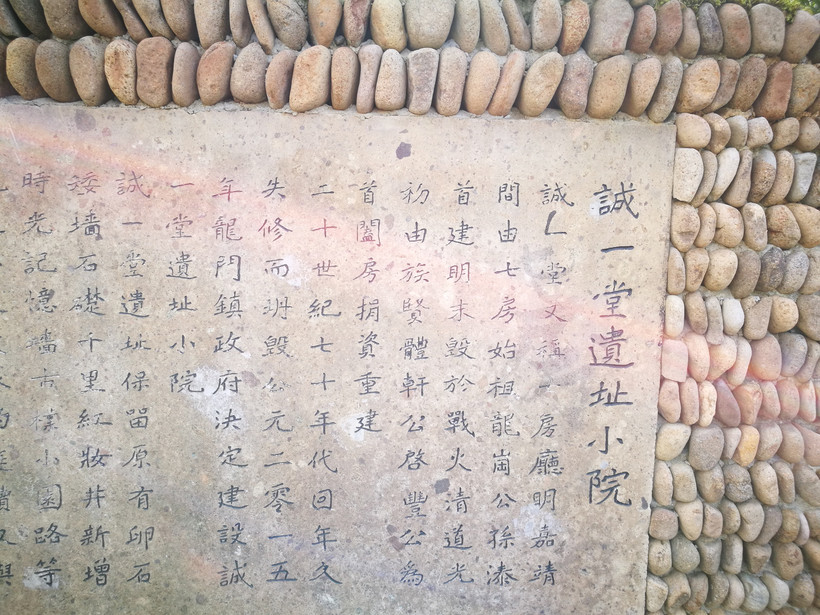 誠一堂遺址小院
誠一堂又稱一房廳明嘉靖
間由七房始祖龍崗公孫溱
首建明末毀於戰火清道光
初由族賢體軒公啓豐公為
首闔房捐資重建
二十世紀七十年代回年久
失修而坍毀公元二零一五
年龍門鎮政府決定建設誠
一堂遺址小院
誠一堂遺址保留原有卵石
矮墻石礎千里紅妝井新增
時光記憶墻古樸小園路等